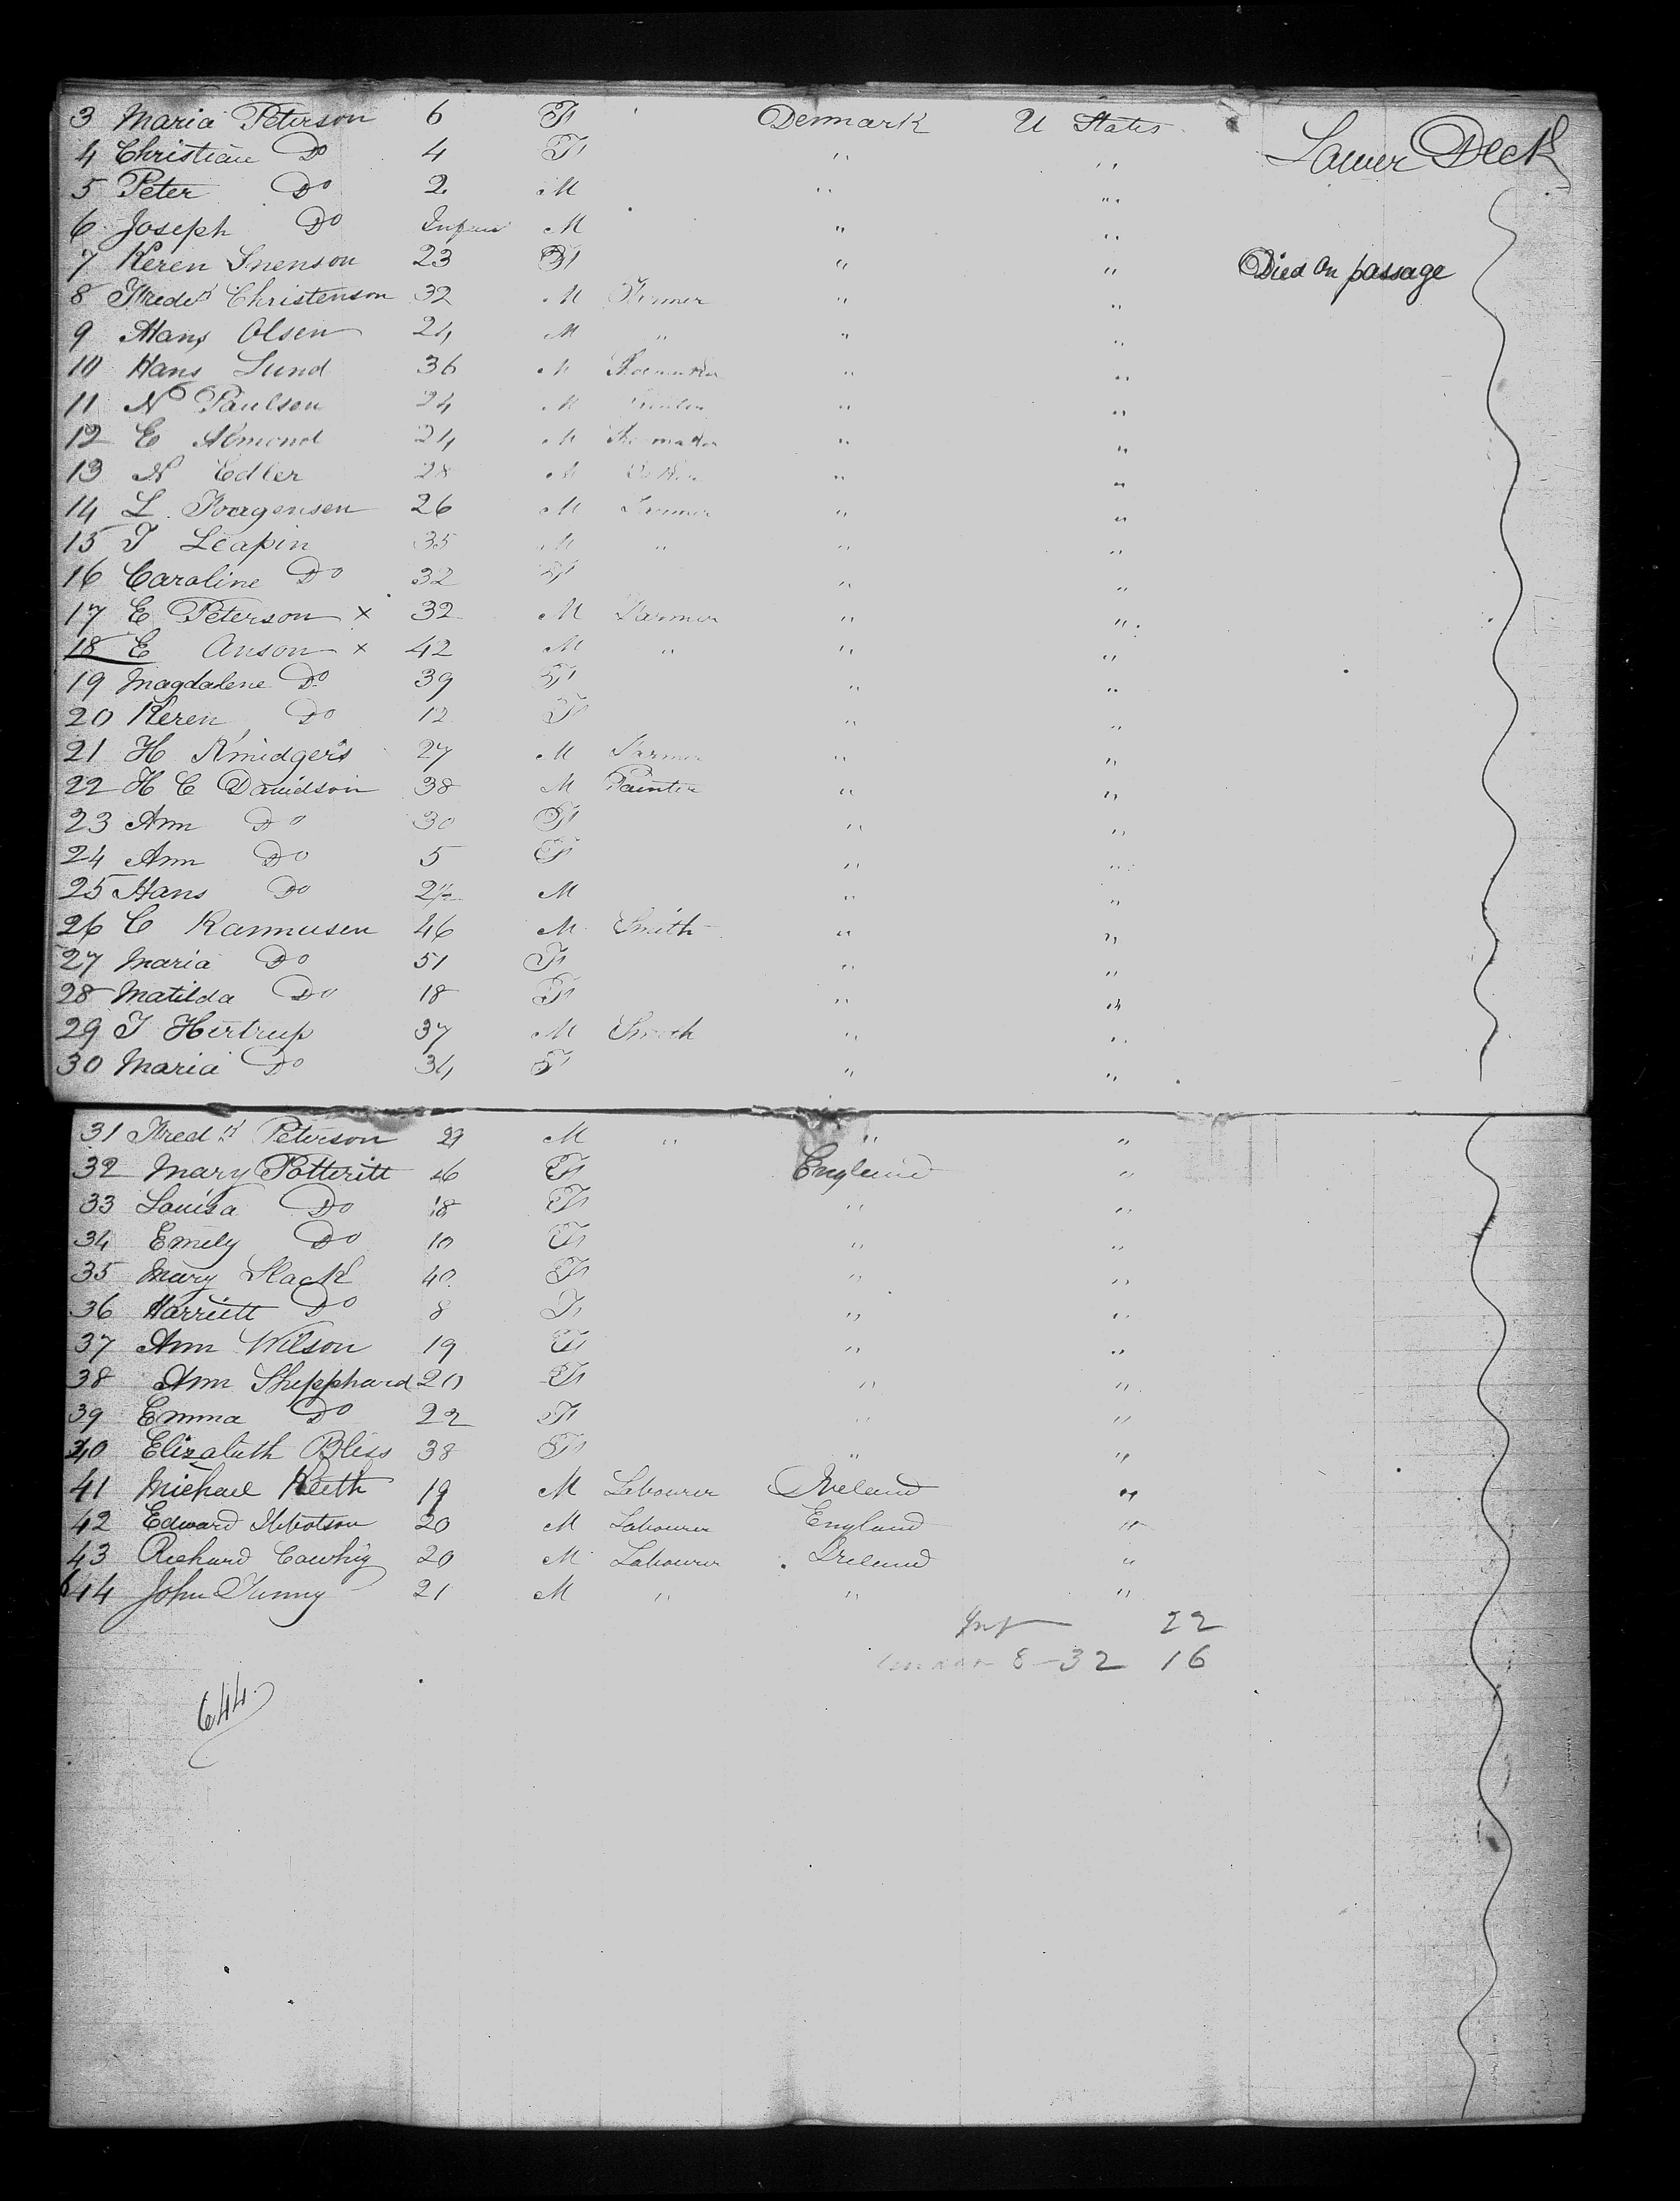 3 Maria Peterson 6 F Denmark U States Lower Deck
4 Christian Do 4 F " "
5 Peter Do 2 M " "
6 Joseph Do Infant M " "
7 Keren Snenson 23 F " " Died On passage
8 Fredek Christenson 32 M Farmer " "
9 Hans Olsen 24 M " " "
10 Hans Lund 36 M Shoemaker " "
11 N Paulson 24 M " "
12 E Almond 24 M Shoemaker " "
13 N Edler 28 M " "
14 L Forgensen 26 M Farmer " "
15 J Leapin 35 M " " "
16 Caroline Do 32 F " "
17 E Peterson x 32 M Farmer " "
18 E Anson x 42 M " " "
19 Magdalene Do 39 F " "
20 Keren Do 12 F " "
21 H Kmidgers 27 M Farmer " "
22 H C Davidson 38 M Painter " "
23 Ann Do 30 F " "
24 Ann Do 5 F " "
25 Hans Do M " "
26 C Rasmusen 46 M Smith " "
27 Maria Do 51 F " "
28 Matilda Do 18 F " "
29 J Hertrup 37 M Smith " "
30 Maria Do 34 F " "
31 Fredk Peterson 29 M " " "
32 Mary Potteritt 46 F England "
33 Louisa Do 18 F " "
34 Emily Do 10 F " "
35 Mary Slack 40 F " "
36 Harriett Do 8 F " "
37 Ann Wilson 19 F " "
38 Ann Shepphard 20 F " "
39 Emma Do 22 F " "
40 Elizabeth Bliss 38 F " "
41 Michael Keith 19 M Labourer Ireland "
42 Edward Ibbotson 20 M Labourer England "
43 Richard Cawhig 20 M Labourer Ireland "
644 John Tunny 21 M " " "
Inf 22
under 8-32 16
644